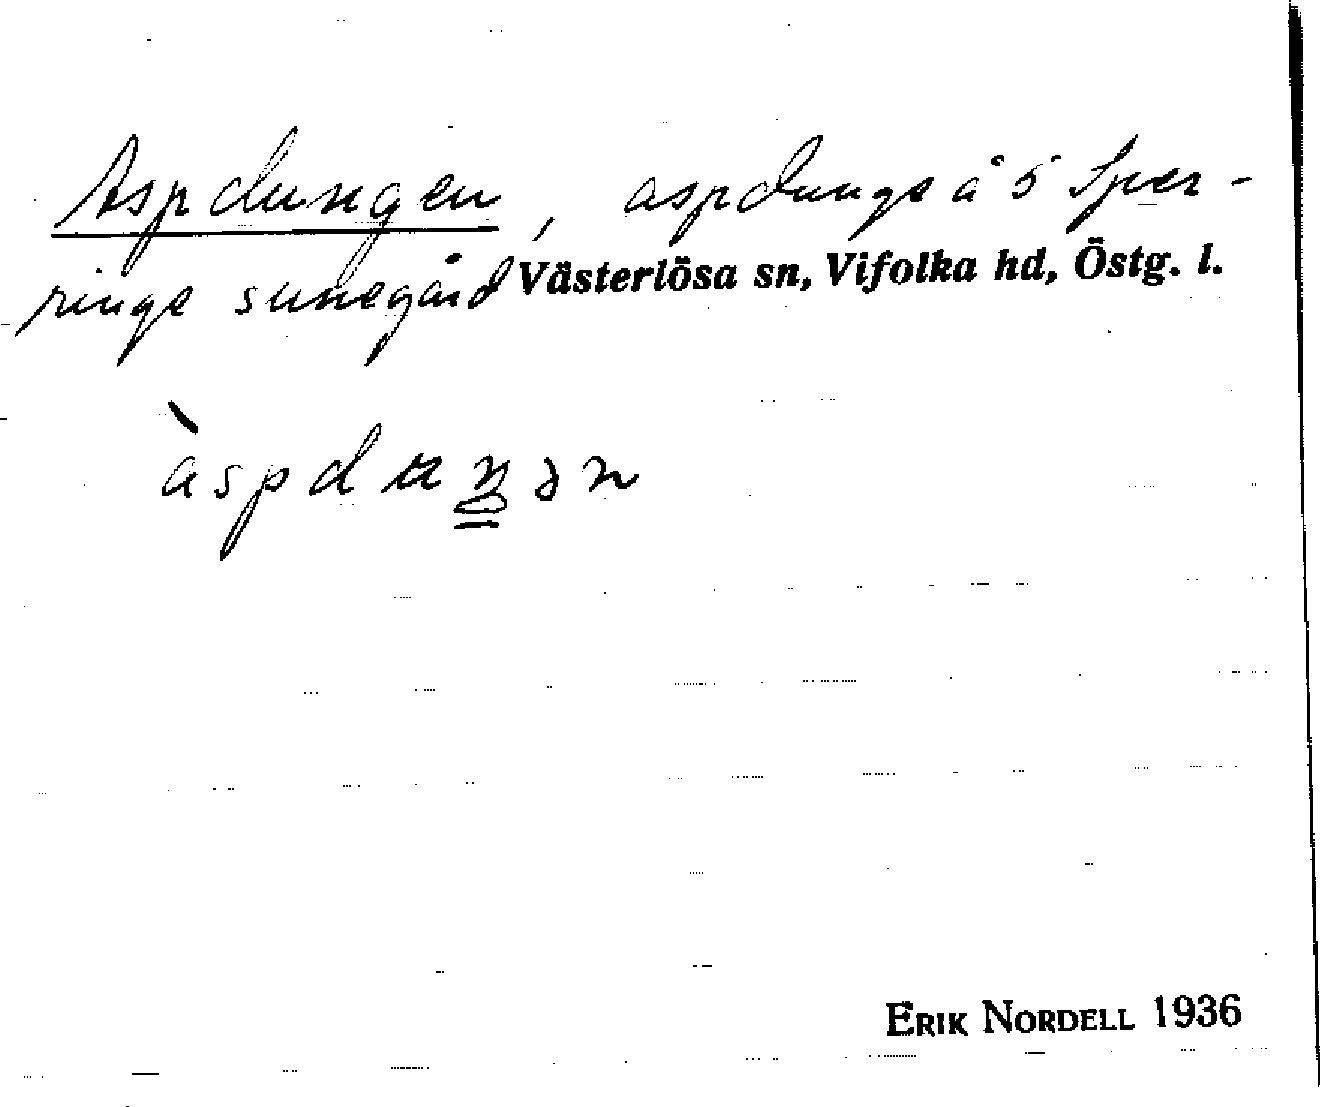 Aspdungen, aspdunge å ö Sper-
ringe sunegård Västerlösa sn, Vifolka hd, Östg. l.
àspduŋən
ERIK NORDELL 1936